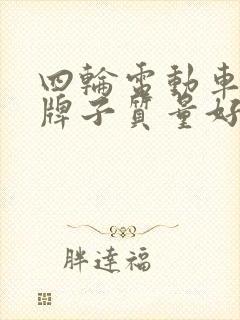 四輪電動車
牌子質量好
胖達福